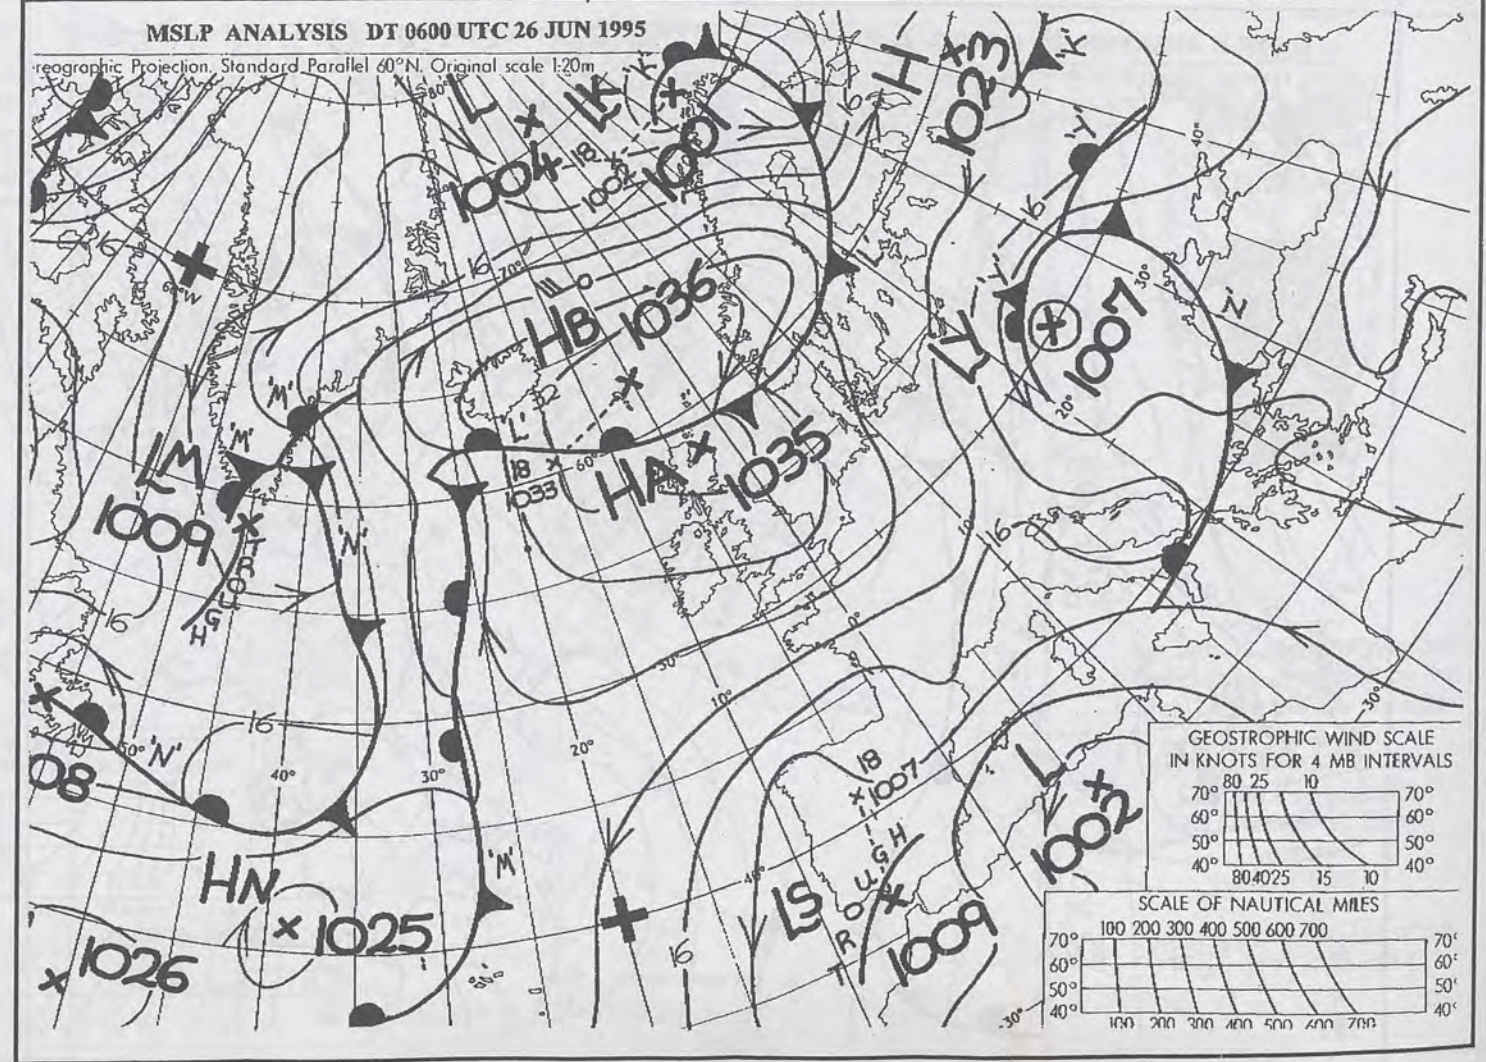 MSLP ANALYSIS DT 0600 UTC 26 JUN 1995
reographic Projection. Standard Parallel 60°N. Original scale 1:20m
L
1004
LK
'K'
18
1002
1001
H
1023
'K'
'Y'
16
40°
80°
16
60°W
16
70°
HB 1036
32
'L'
'L'
LY
'Y'
16
1007
30°
'Z'
20°
'M'
'M'
LM
1009
TROUGH
'N'
18
1033
60°
HA 1035
16
10°
16
16
'N'
50°
08
40°
30°
20°
10°
0°
50°
30°
'M'
HN
1025
1026
18
1007
TROUGH
LS
1009
L
1002
40°
16
30°
GEOSTROPHIC WIND SCALE
IN KNOTS FOR 4 MB INTERVALS
80 25 10
70° 70°
60° 60°
50° 50°
40° 40°
80 40 25 15 10
SCALE OF NAUTICAL MILES
100 200 300 400 500 600 700
70° 70°
60° 60°
50° 50°
40° 40°
100 200 300 400 500 600 700